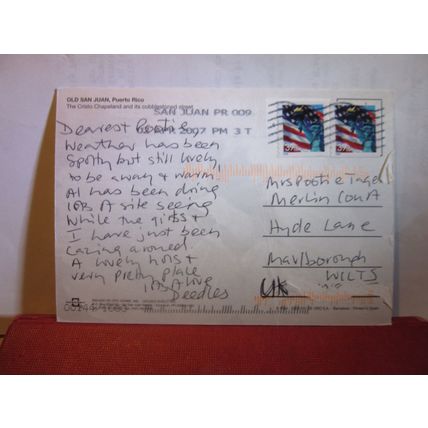 OLD SAN JUAN, Puerto Rico
The Cristo Chapel and its cobblestoned street
SAN JUAN PR 009
2007 PM 3 T
Dearest
Weather has been
Spotty but still lovely
to be away & warm
Al has been doing
lots A site seeing
While the girls &
I have just been
Lazing around
A lovely hols &
very pretty place
lots A love
Deedles
Mrs Pootie
Merlin Court
Hyde Lane
Marlborough
WILTS
UK